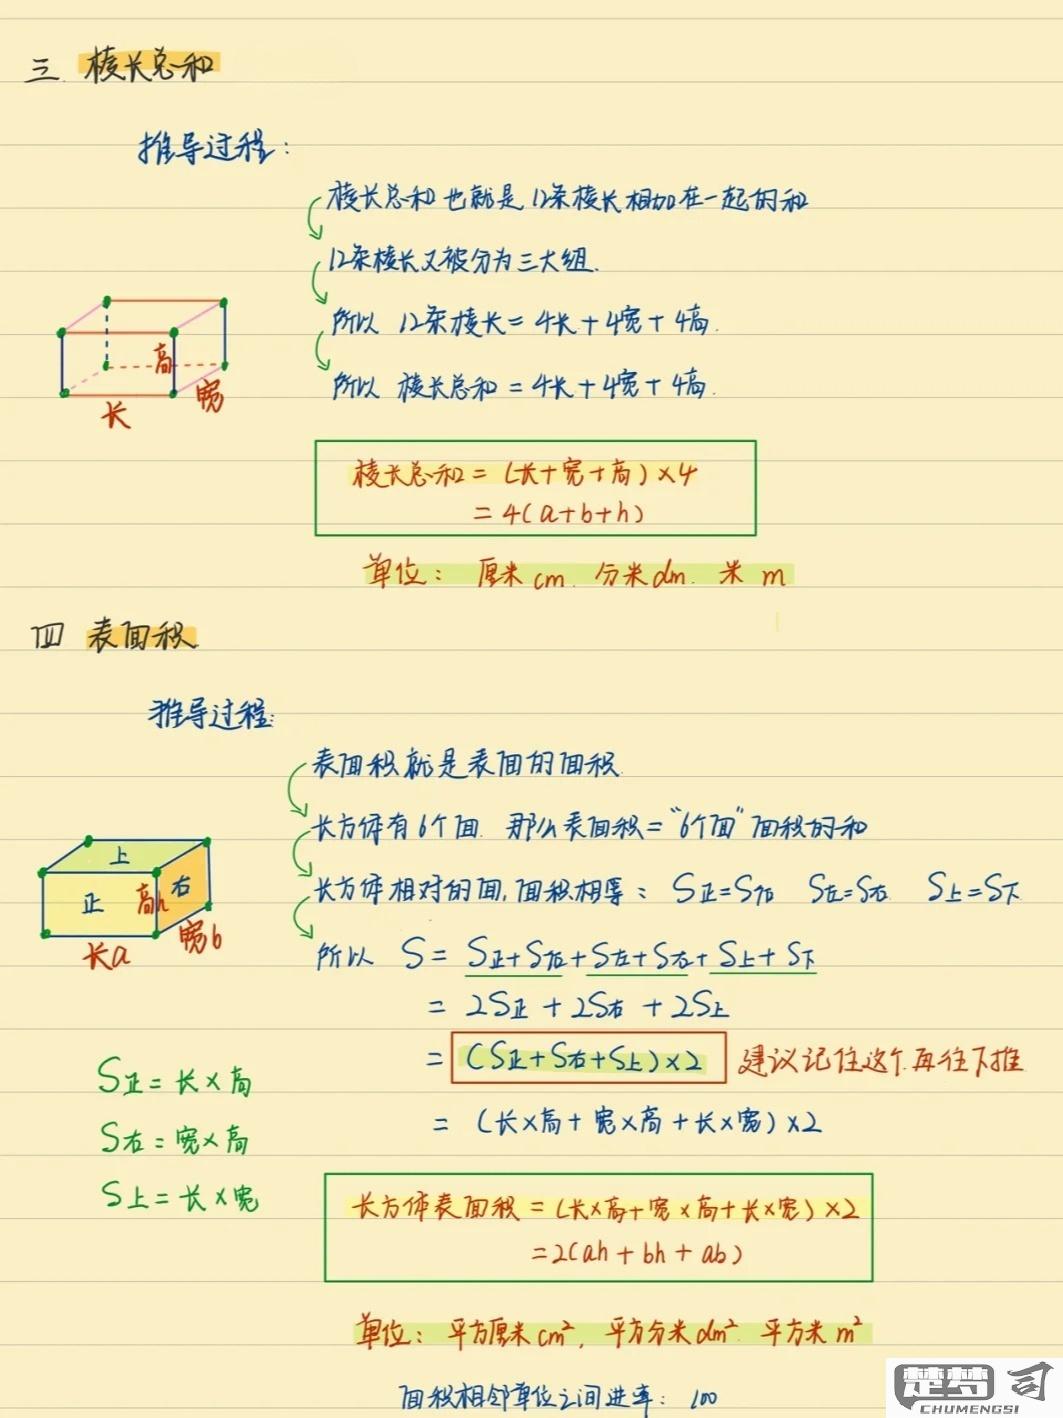 三. 棱长总和
推导过程:
棱长总和也就是12条棱长相加在一起的和
12条棱长又被分为三大组.
所以 12条棱长=4长+4宽+4高.
所以 棱长总和=4长+4宽+4高.
高
宽
长
棱长总和=(长+宽+高)×4
=4(a+b+h)
单位: 厘米cm. 分米dm. 米 m
四 表面积
推导过程:
表面积就是表面的面积.
长方体有6个面. 那么表面积="6个面"面积的和
长方体相对的面,面积相等: S正=S后 S左=S右 S上=S下
上
正
右
高h
长a
宽b
所以 S=S正+S后+S左+S右+S上+S下
=2S正+2S右+2S上
=(S正+S右+S上)×2 建议记住这个再往下推
=(长×高+宽×高+长×宽)×2
S正=长×高
S右=宽×高
S上=长×宽
长方体表面积=(长×高+宽×高+长×宽)×2
=2(ah+bh+ab)
单位: 平方厘米cm², 平方分米dm² 平方米m²
面积相邻单位之间进率: 100
楚梦司
CHUMENGSI